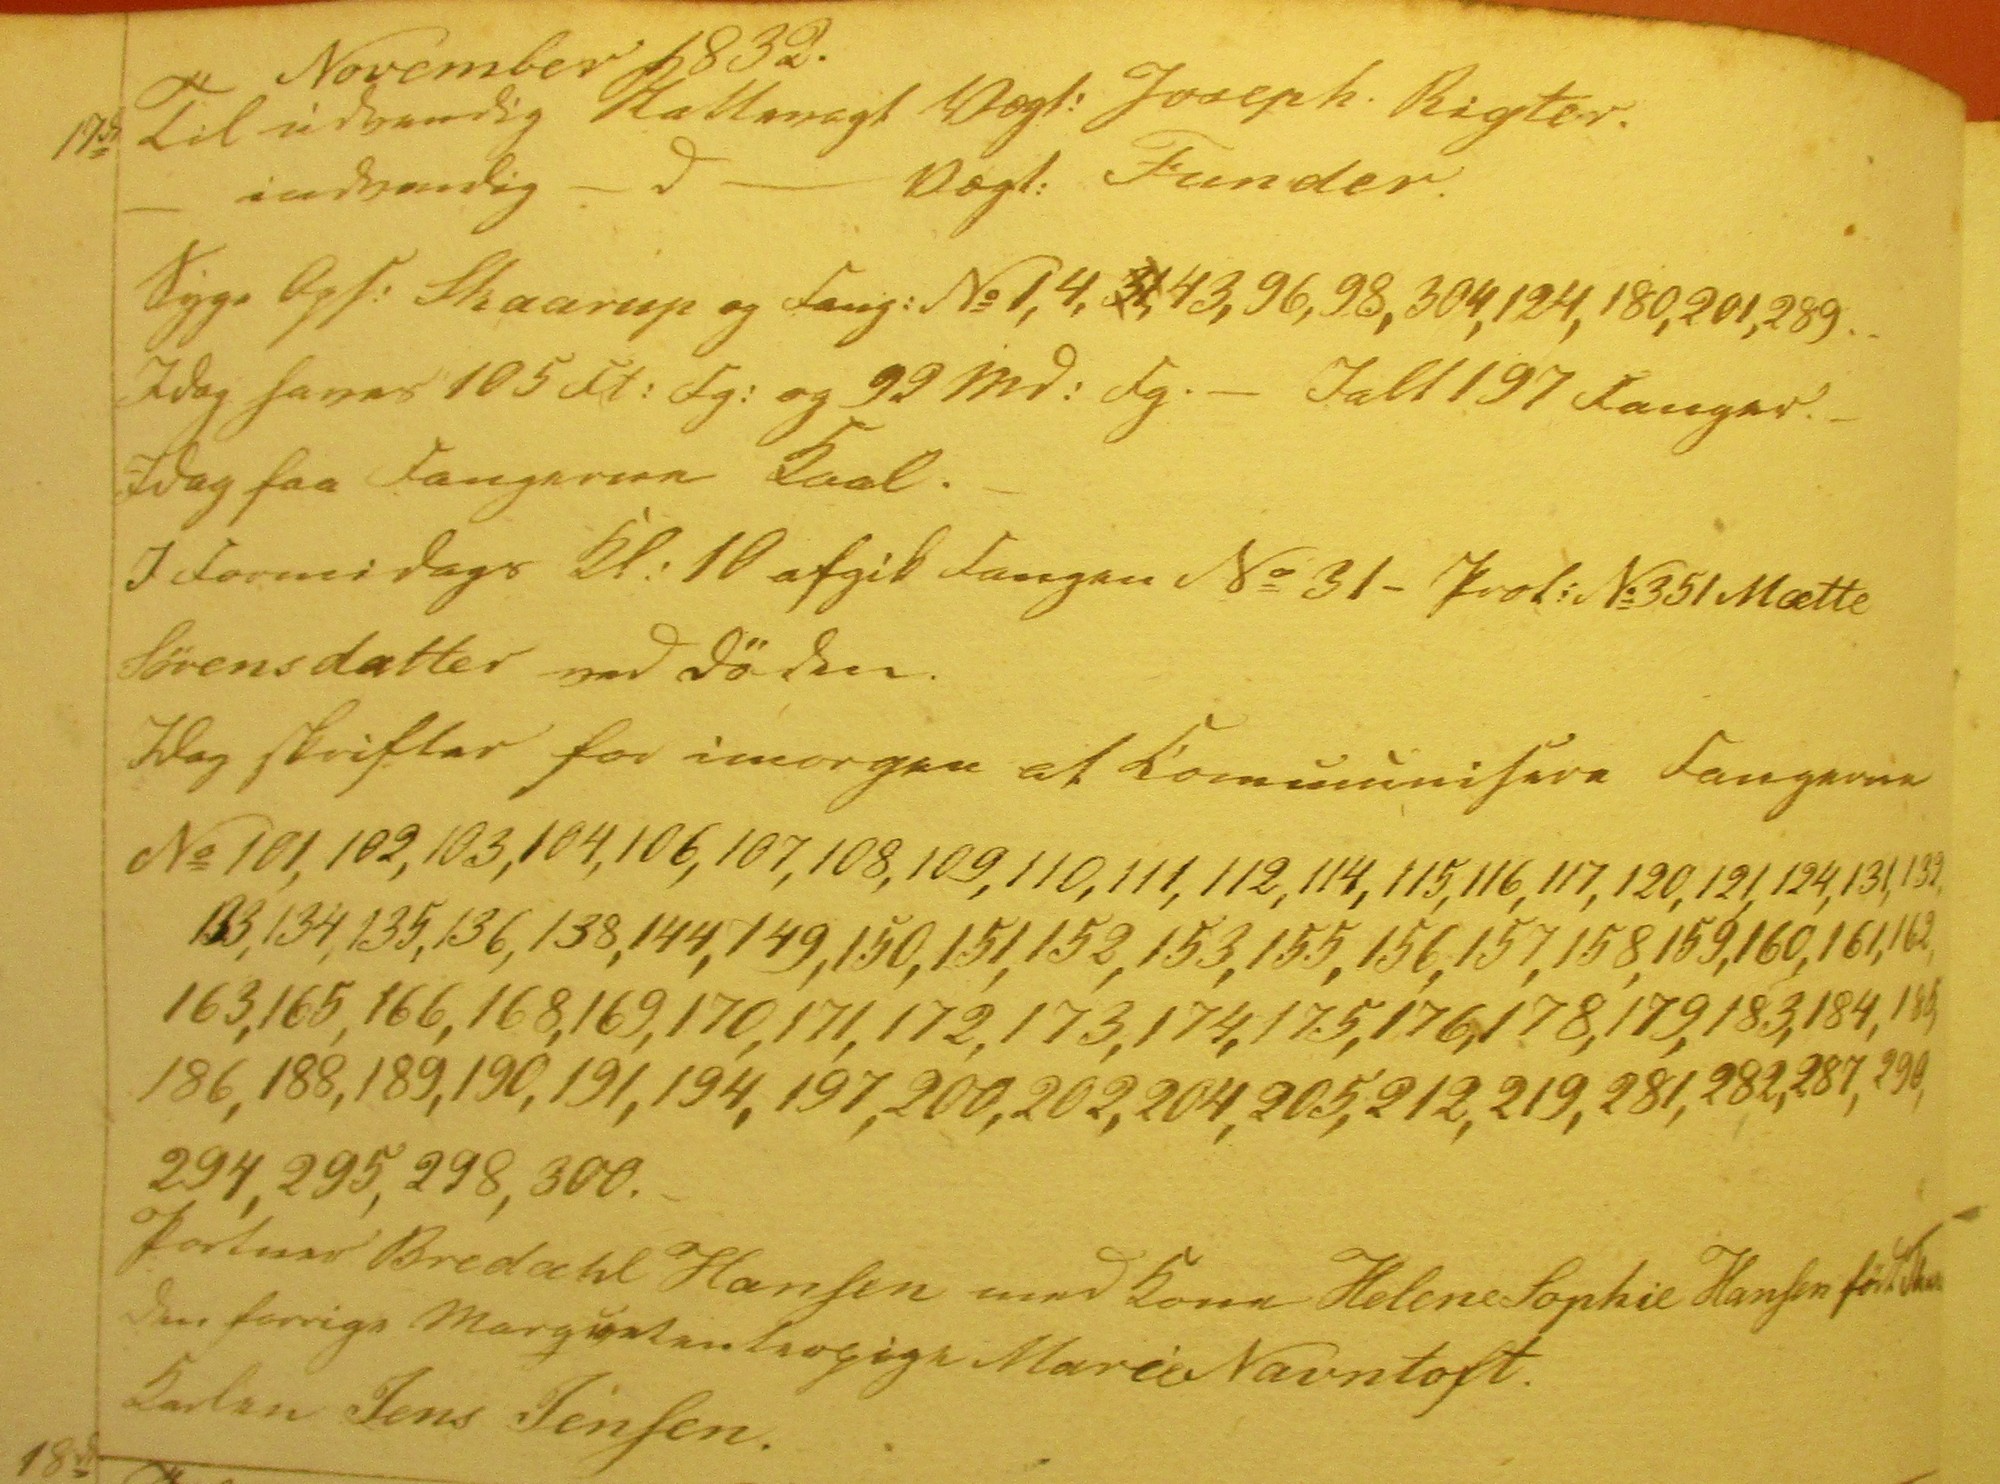 November 1832.
17d Til udvendig Nattevagt Vægt: Joseph. Rigter.
— indvendig — d — Vægt: Funder.
Syge Ops: Skaarup og Fang: No 1, 4, 31, 43, 96, 98, 304, 124, 180, 201, 289. -
Idag haves 105 Ft: Fg: og 92 Md: Fg. — Ialt 197 Fanger. —
Idag faa Fangerne Kaal. —
I Formidags Kl: 10 afgik Fangen No 31 - Prot: No 351 Mætte
Sörensdatter ved Döden.
Idag skrifter for imorgen at Communisere Fangerne
No 101, 102, 103, 104, 106, 107, 108, 109, 110, 111, 112, 114, 115, 116, 117, 120, 121, 124, 131, 132,
133, 134, 135, 136, 138, 144, 149, 150, 151, 152, 153, 155, 156, 157, 158, 159, 160, 161, 162,
163, 165, 166, 168, 169, 170, 171, 172, 173, 174, 175, 176, 178, 179, 183, 184, 185
186, 188, 189, 190, 191, 194, 197, 200, 202, 204, 205, 212, 219, 281, 282, 287, 290,
294, 295, 298, 300. —
Portner Bredahl Hansen med Kone Helene Sophie Hansen föd
den forrige Marqvetenterpige Marie Navntoft.
Karlen Jens Jensen.
18d